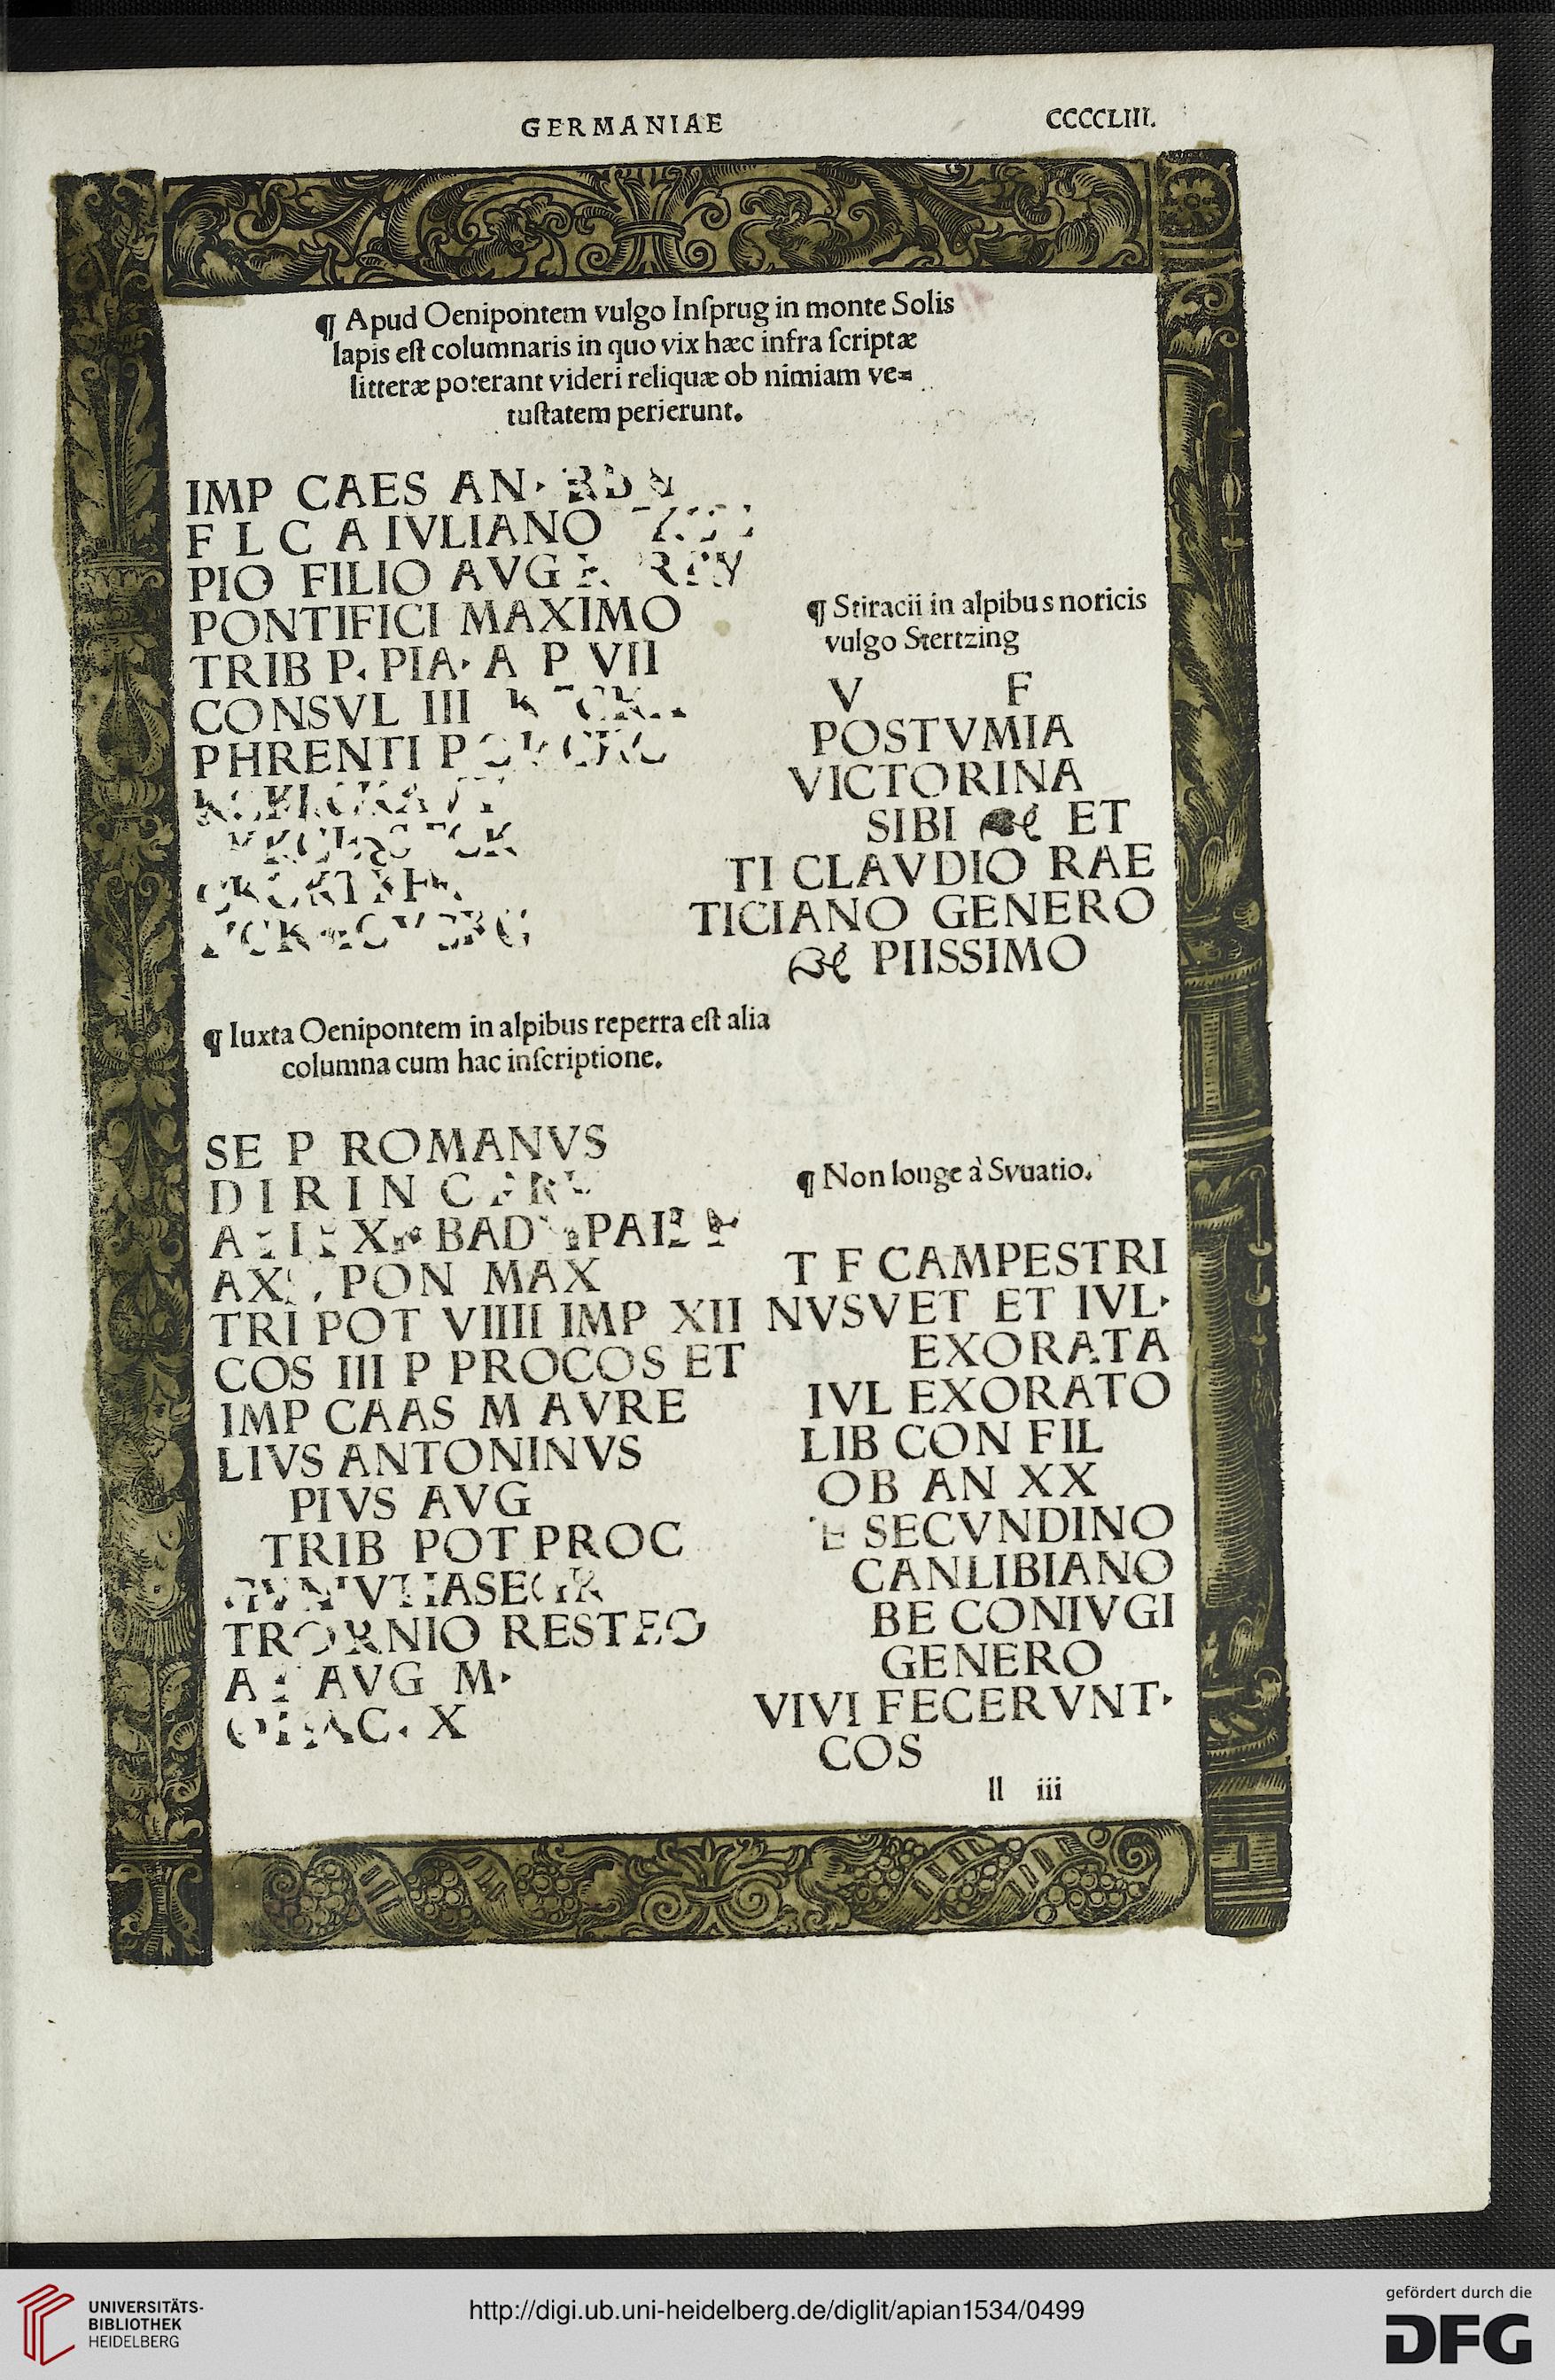 GERMANIAE
CCCCLIII.
¶ Apud Oenipontem vulgo Inſprug in monte Solis
lapis eſt columnaris in quo vix hæc infra ſcriptæ
litteræ poterant videri reliquæ ob nimiam ve=
tuſtatem perierunt.
IMP CAES AN·
F L C A IVLIANO
PIO FILIO AVG
PONTIFICI MAXIMO
TRIB P. PIA· A P VII
CONSVL III
PHRENTI P
¶ Iuxta Oenipontem in alpibus reperra eſt alia
columna cum hac inſcriptione.
SE P ROMANVS
D I R I N C
A I X BAD PAI
AX PON MAX
TRI POT VIIII IMP XII
COS III P PROCOS ET
IMP CAAS M AVRE
LIVS ANTONINVS
PIVS AVG
TRIB POT PROC
VT ASE
TRO NIO REST
A AVG M·
AC. X
¶ Stiracii in alpibus noricis
vulgo Stertzing
V F
POSTVMIA
VICTORINA
SIBI ET
TI CLAVDIO RAE
TICIANO GENERO
PIISSIMO
¶ Non longe à Svuatio.
T F CAMPESTRI
NVSVET ET IVL·
EXORATA
IVL EXORATO
LIB CON FIL
OB AN XX
E SECVNDINO
CANLIBIANO
BE CONIVGI
GENERO
VIVI FECERVNT·
COS
ll iii
UNIVERSITÄTS-
BIBLIOTHEK
HEIDELBERG
http://digi.ub.uni-heidelberg.de/diglit/apian1534/0499
gefördert durch die
DFG